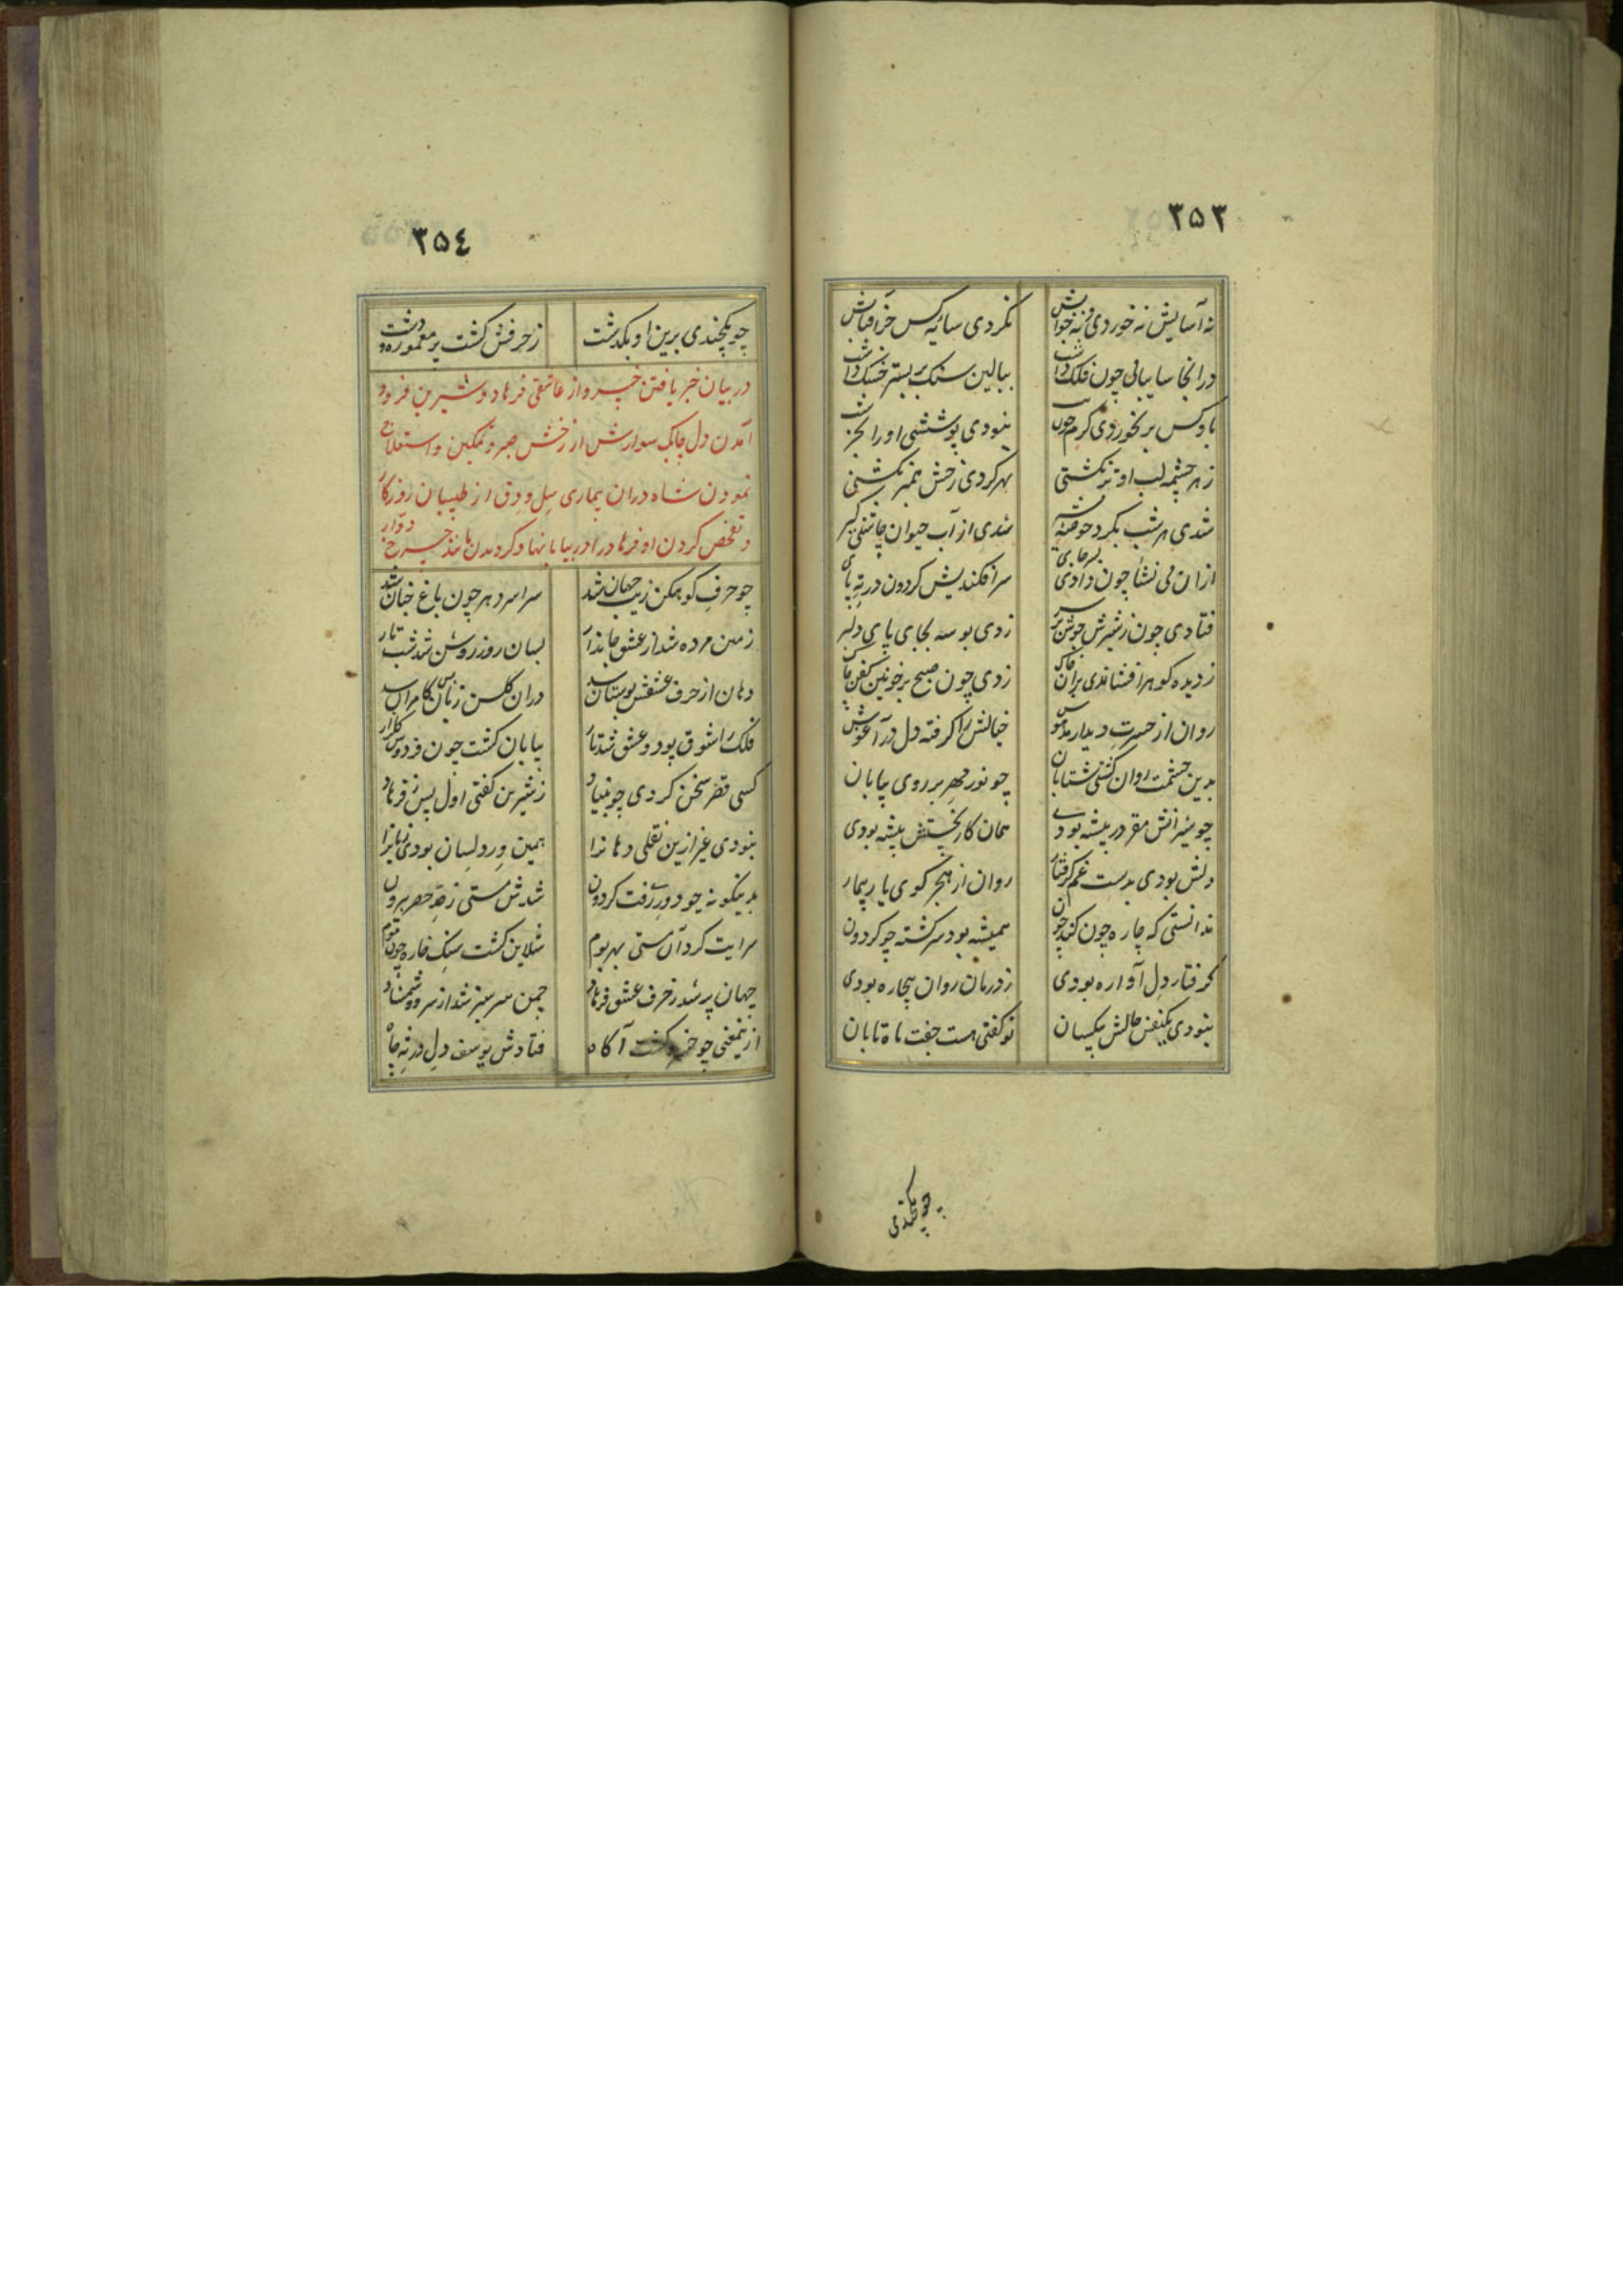 ۳۵۳
نه آسایش نه خوردی و نه خوابش نکردی سایهٔ کس جز آفتابش
در انجا سایبانی چون فلک داشت ببالین سنک بر بستر خسک داشت
با وکس بر نخوردی کرم چون نبودی پوششی او را بجز
ز هر چشمه لب او تر نکشتی بهر کردی رخش همبر نکشتی
شدی هر شب بکرد حوضهٔ شدی از آب حیوان چاشنی کیر
ازان می نشأ چون دادی سر افکندیش کردون در ته پای
فتادی چون ز شیرش جوش بر سر زدی بوسه بجای پای دلبر
ز دیده کوهر افشاندی بران خاک زدی چون صبح بر خونین کفن چاک
روان از حسرت دیدار مدهوش خیالش را کرفته دل در آغوش
بدین حشمت روان کشتی شتابان چو نور مهر بر روی بیابان
چو شیرانش مقر در بیشه بودی همان کار نخستش پیشه بودی
دلش بودی بدست غم کرفتار روان از هجر کوی یار بیمار
ندانستی که چاره چون کند چون همیشه بود سرکشته چو کردون
کرفتار دل آواره بودی ز درمان روان بیچاره بودی
نبودی یکنفس حالش بیکسان تو کفتی هست جفت ماه تابان
چو یکچندی
۳۵۴
چو یکچندی برین او بکذشت ز حرفش کشت پر معموره و دشت
در بیان خبر یافتن خسرو از عاشقی فرهاد و شیرین و فرود
آمدن دل چابک سوارش از رخش صبر و تمکین و استعلاج
نمودن شاه دران بیماری سل و دق از طبیبان روزکار
و تفحص کردن او فرهاد را در بیابانها و کردیدن مانند چرخ دوار
چو حرف کوهکن زیب جهان شد سراسر دهر چون باغ جنان شد
زمین مرده شد از عشق جاندار بسان روز روشن شد شب تار
دهان از حرف عشقش بوستان شد دران کلشن زبانش کامران شد
فلک را شوق پود و عشق شد تار بیابان کشت چون فردوس کلزار
کسی قصر سخن کردی چو بنیاد ز شیرین کفتی اول پس ز فرهاد
نبودی غیر ازین نقلی دهانرا همین ورد لسان بودی زبانرا
بدینکونه چو دوری رفت کردون شدش مستی ز حد حصر بیرون
سرایت کرد آن مستی بهر بوم شلاین کشت سنک خاره چون موم
جهان پر شد ز حرف عشق فرهاد چمن سرسبز شد از سرو و شمشاد
ازینمعنی چو خسرو کشت آکاه فتادش یوسف دل در ته چاه